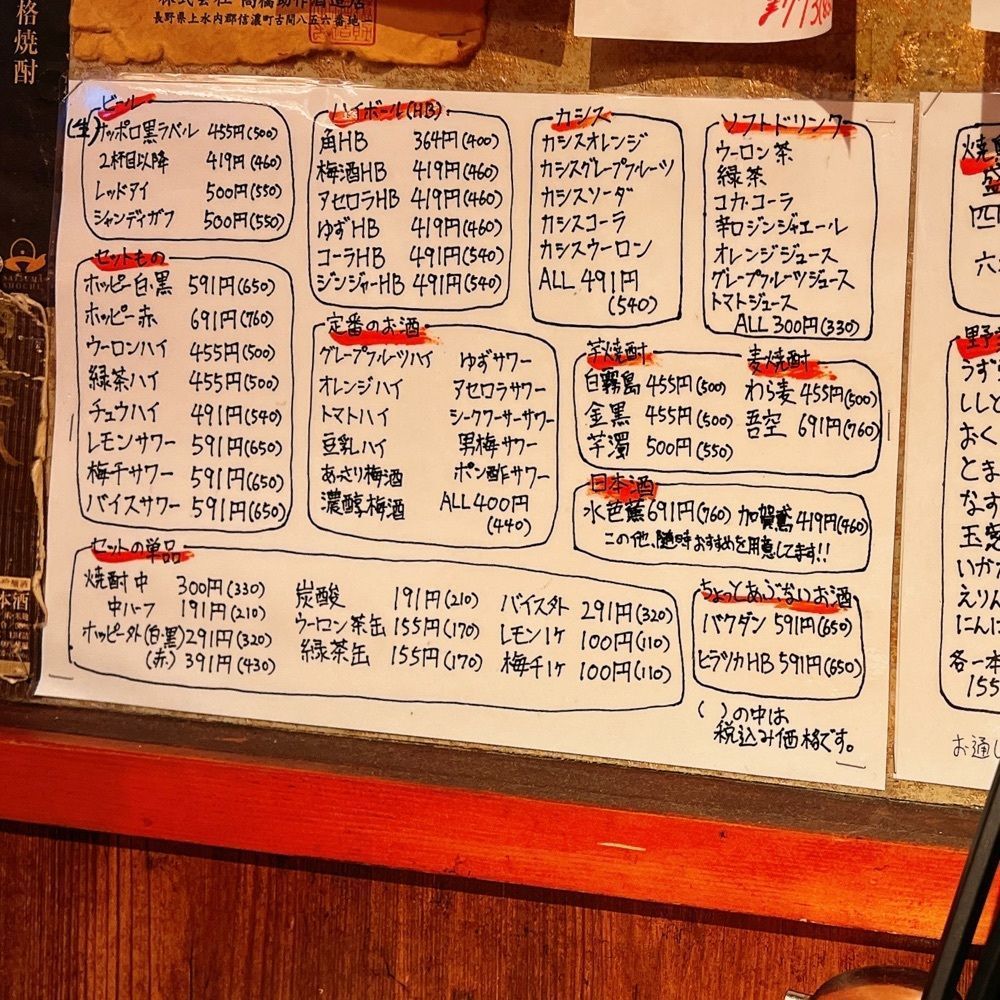 格焼酎
株式会社 高橋助作酒造店
長野県上水内郡信濃町古間八五六番地
ビール
(生)サッポロ黒ラベル 455円(500)
2杯目以降 419円(460)
レッドアイ 500円(550)
シャンディガフ 500円(550)
セットもの
ホッピー白・黒 591円(650)
ホッピー赤 691円(760)
ウーロンハイ 455円(500)
緑茶ハイ 455円(500)
チュウハイ 491円(540)
レモンサワー 591円(650)
梅干サワー 591円(650)
バイスサワー 591円(650)
ハイボール(HB)
角HB 364円(400)
梅酒HB 419円(460)
アセロラHB 419円(460)
ゆずHB 419円(460)
コーラHB 491円(540)
ジンジャーHB 491円(540)
定番のお酒
グレープフルーツハイ ゆずサワー
オレンジハイ アセロラサワー
トマトハイ シークワーサーサワー
豆乳ハイ 男梅サワー
あっさり梅酒 ポン酢サワー
濃醇梅酒 ALL400円
(440)
カシス
カシスオレンジ
カシスグレープフルーツ
カシスソーダ
カシスコーラ
カシスウーロン
ALL 491円
(540)
ソフトドリンク
ウーロン茶
緑茶
コカ・コーラ
辛口ジンジャエール
オレンジジュース
グレープフルーツジュース
トマトジュース
ALL 300円(330)
芋焼酎 麦焼酎
白霧島 455円(500) わら麦 455円(500)
金黒 455円(500) 吾空 691円(760)
芋濁 500円(550)
日本酒
水芭蕉691円(760) 加賀鳶419円(460)
この他、随時おすすめを用意してます!!
セットの単品
焼酎中 300円(330) 炭酸 191円(210) バイス外 291円(320)
中ハーフ 191円(210) ウーロン茶缶 155円(170) レモン1ケ 100円(110)
ホッピー外(白・黒)291円(320) 緑茶缶 155円(170) 梅干1ケ 100円(110)
(赤) 391円(430)
ちょっとあぶないお酒
バクダン 591円(650)
ヒラツカHB 591円(650)
( )の中は
税込み価格です。
焼鳥
盛
四
六
野菜
うずら
ししと
おく
とま
なす
玉ねぎ
いか
えりん
にんに
各一本
155
お通し
本酒